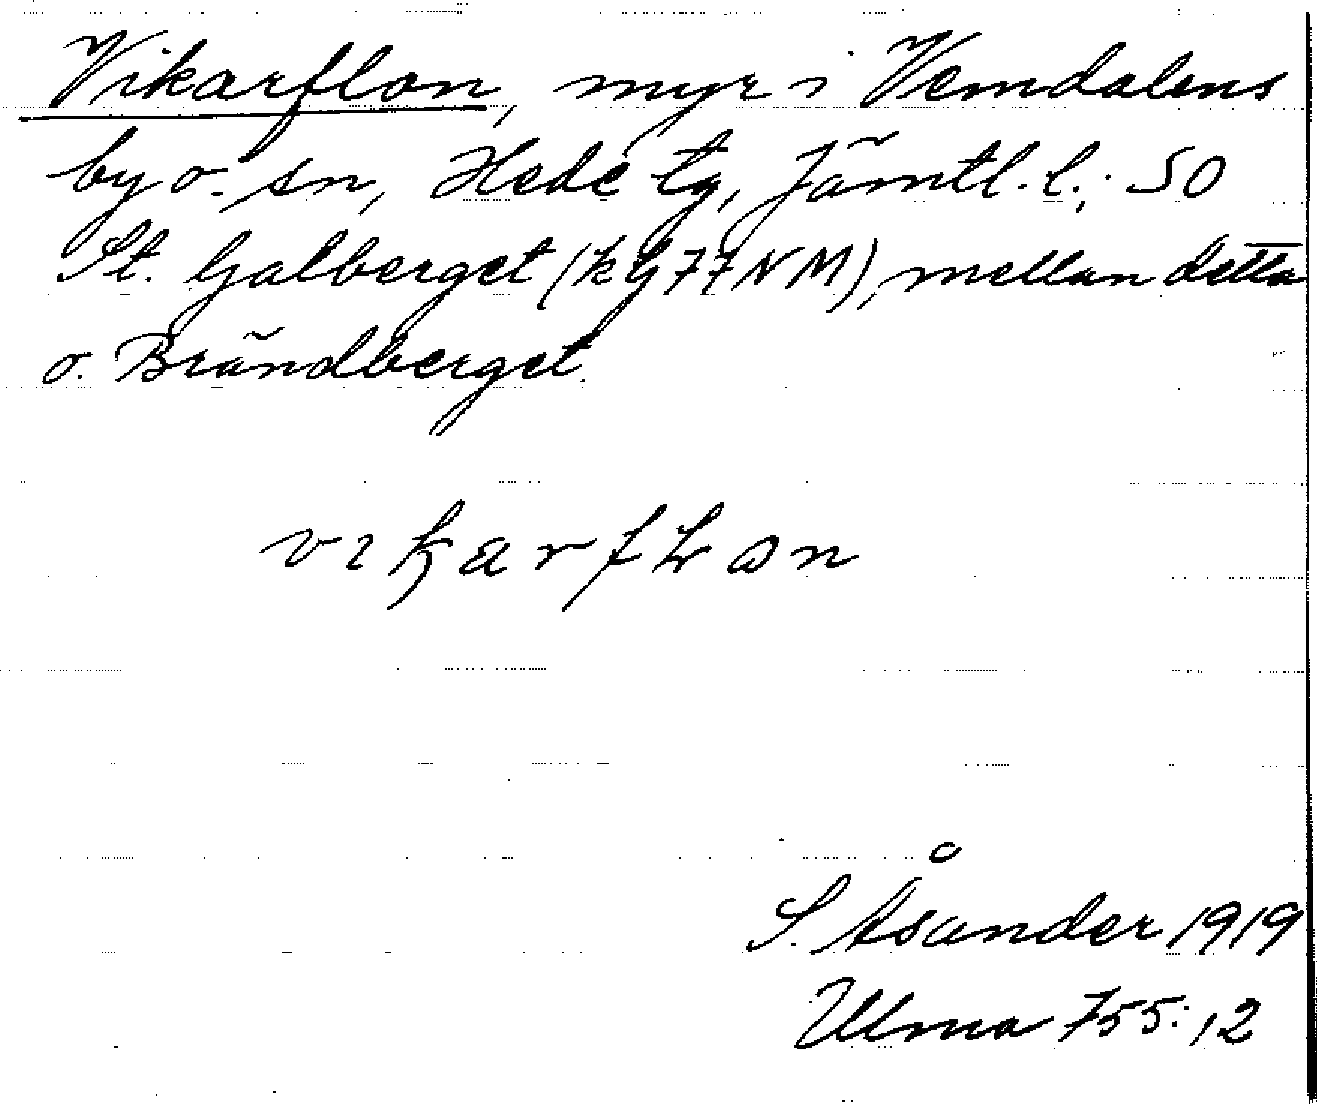 Vikarflon, myr i Vemdalens
by o. sn, Hede tg, Jämtl. l.; SO
St. Galberget (kbl 77 NM), mellan detta
o. Brändberget.
vikarflon
S. Åsander 1919
Ulma 755:12